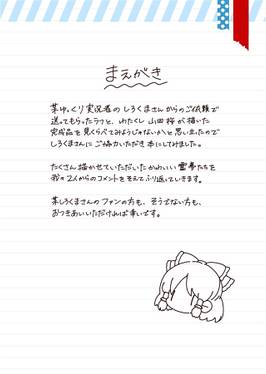 まえがき
某ゆっくり実況者のしろくまさんからのご依頼で
送ってもらったラフと、わたくし山田桜が描いた
完成品を見くらべてみようじゃないか と思い立ったので
しろくまさんにご協力いただき本にしてみました。
たくさん描かせていただいたかわいい霊夢たちを
我々2人からのコメントをそえてふり返っていきます。
某しろくまさんのファンの方も、そうでない方も、
おつきあいいただければ幸いです。